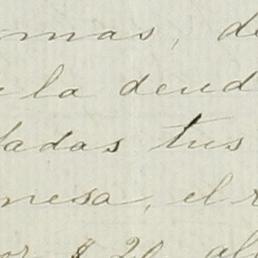 omas, de
la deud
dadas tus
mesa, el r
or $20 al